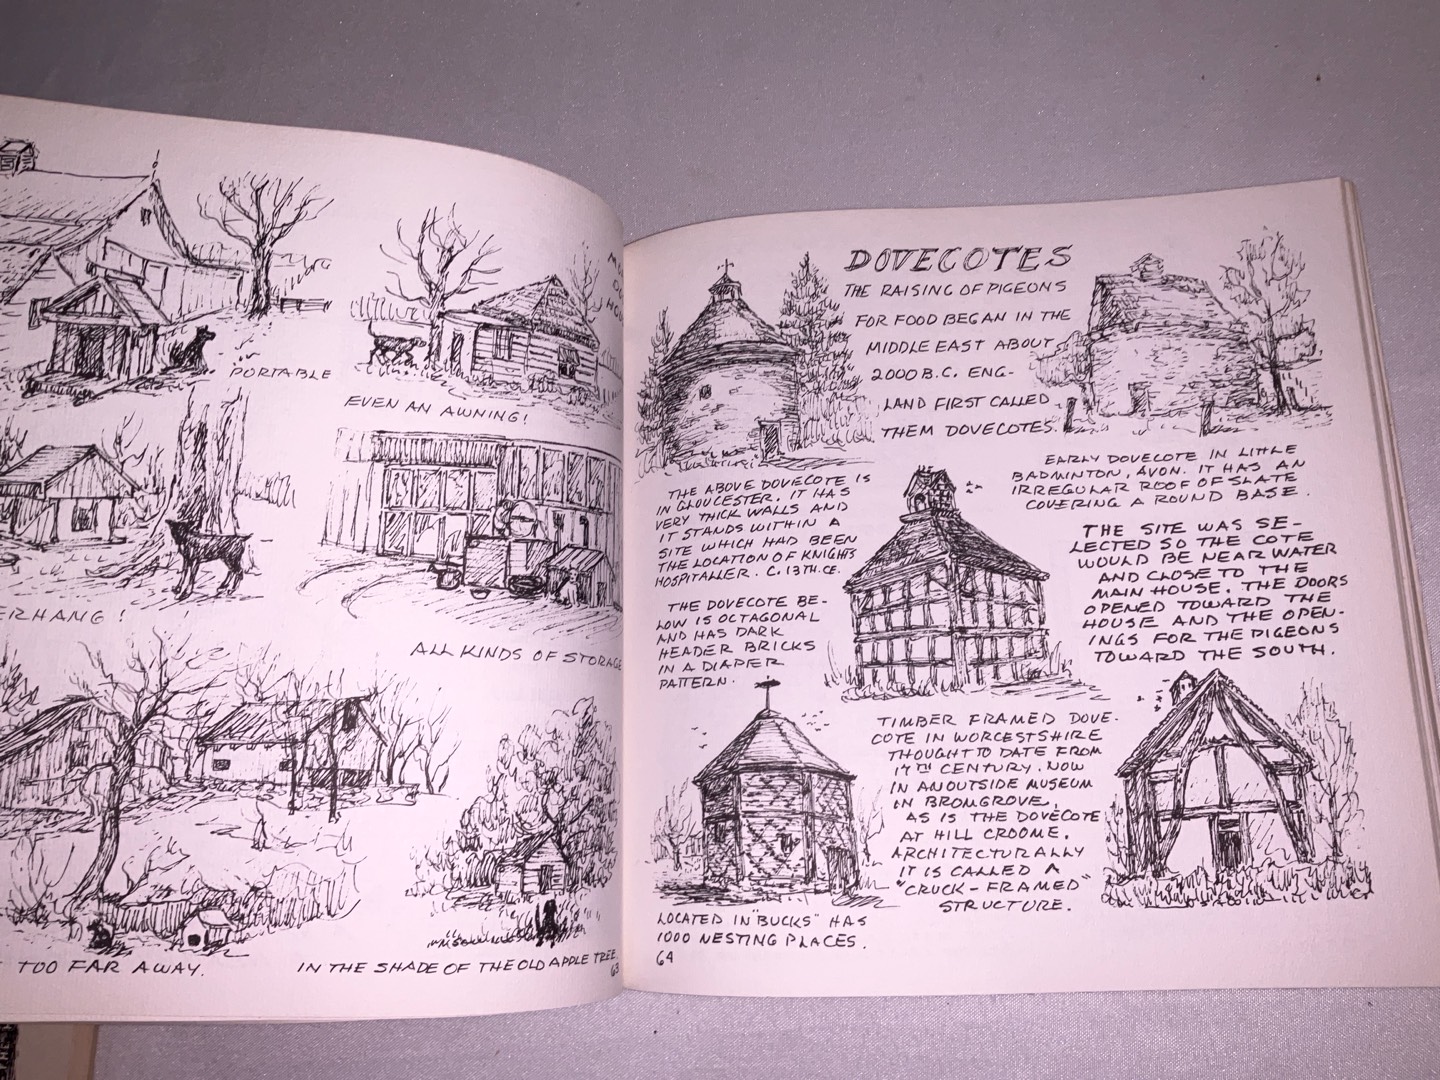 PORTABLE
EVEN AN AWNING!
ERHANG!
ALL KINDS OF STORAGE
TOO FAR AWAY.
IN THE SHADE OF THE OLD APPLE TREE.
63
DOVECOTES
THE RAISING OF PIGEONS
FOR FOOD BEGAN IN THE
MIDDLE EAST ABOUT
2000 B.C. ENG-
LAND FIRST CALLED
THEM DOVECOTES.
THE ABOVE DOVECOTE IS
IN GLOUCESTER. IT HAS
VERY THICK WALLS AND
IT STANDS WITHIN A
SITE WHICH HAD BEEN
THE LOCATION OF KNIGHTS
HOSPITALLER. C. 13TH. CE.
EARLY DOVECOTE IN LITTLE
BADMINTON, AVON. IT HAS AN
IRREGULAR ROOF OF SLATE
COVERING A ROUND BASE.
THE SITE WAS SE-
LECTED SO THE COTE
WOULD BE NEAR WATER
AND CLOSE TO THE
MAIN HOUSE. THE DOORS
OPENED TOWARD THE
HOUSE AND THE OPEN-
INGS FOR THE PIGEONS
TOWARD THE SOUTH.
THE DOVECOTE BE-
LOW IS OCTAGONAL
AND HAS DARK
HEADER BRICKS
IN A DIAPER
PATTERN.
TIMBER FRAMED DOVE-
COTE IN WORCESTSHIRE
THOUGHT TO DATE FROM
17TH CENTURY. NOW
IN AN OUTSIDE MUSEUM
IN BROMGROVE,
AS IS THE DOVECOTE
AT HILL CROOME.
ARCHITECTURALLY
IT IS CALLED A
"CRUCK-FRAMED"
STRUCTURE.
LOCATED IN "BUCKS" HAS
1000 NESTING PLACES.
64